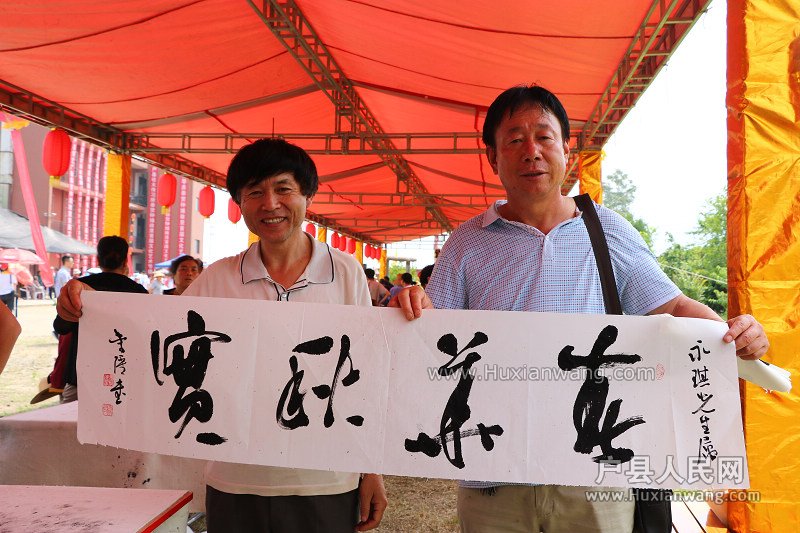 永琪先生属
春華秋實
www.Huxianwang.com
户县人民网
www.Huxianwang.com